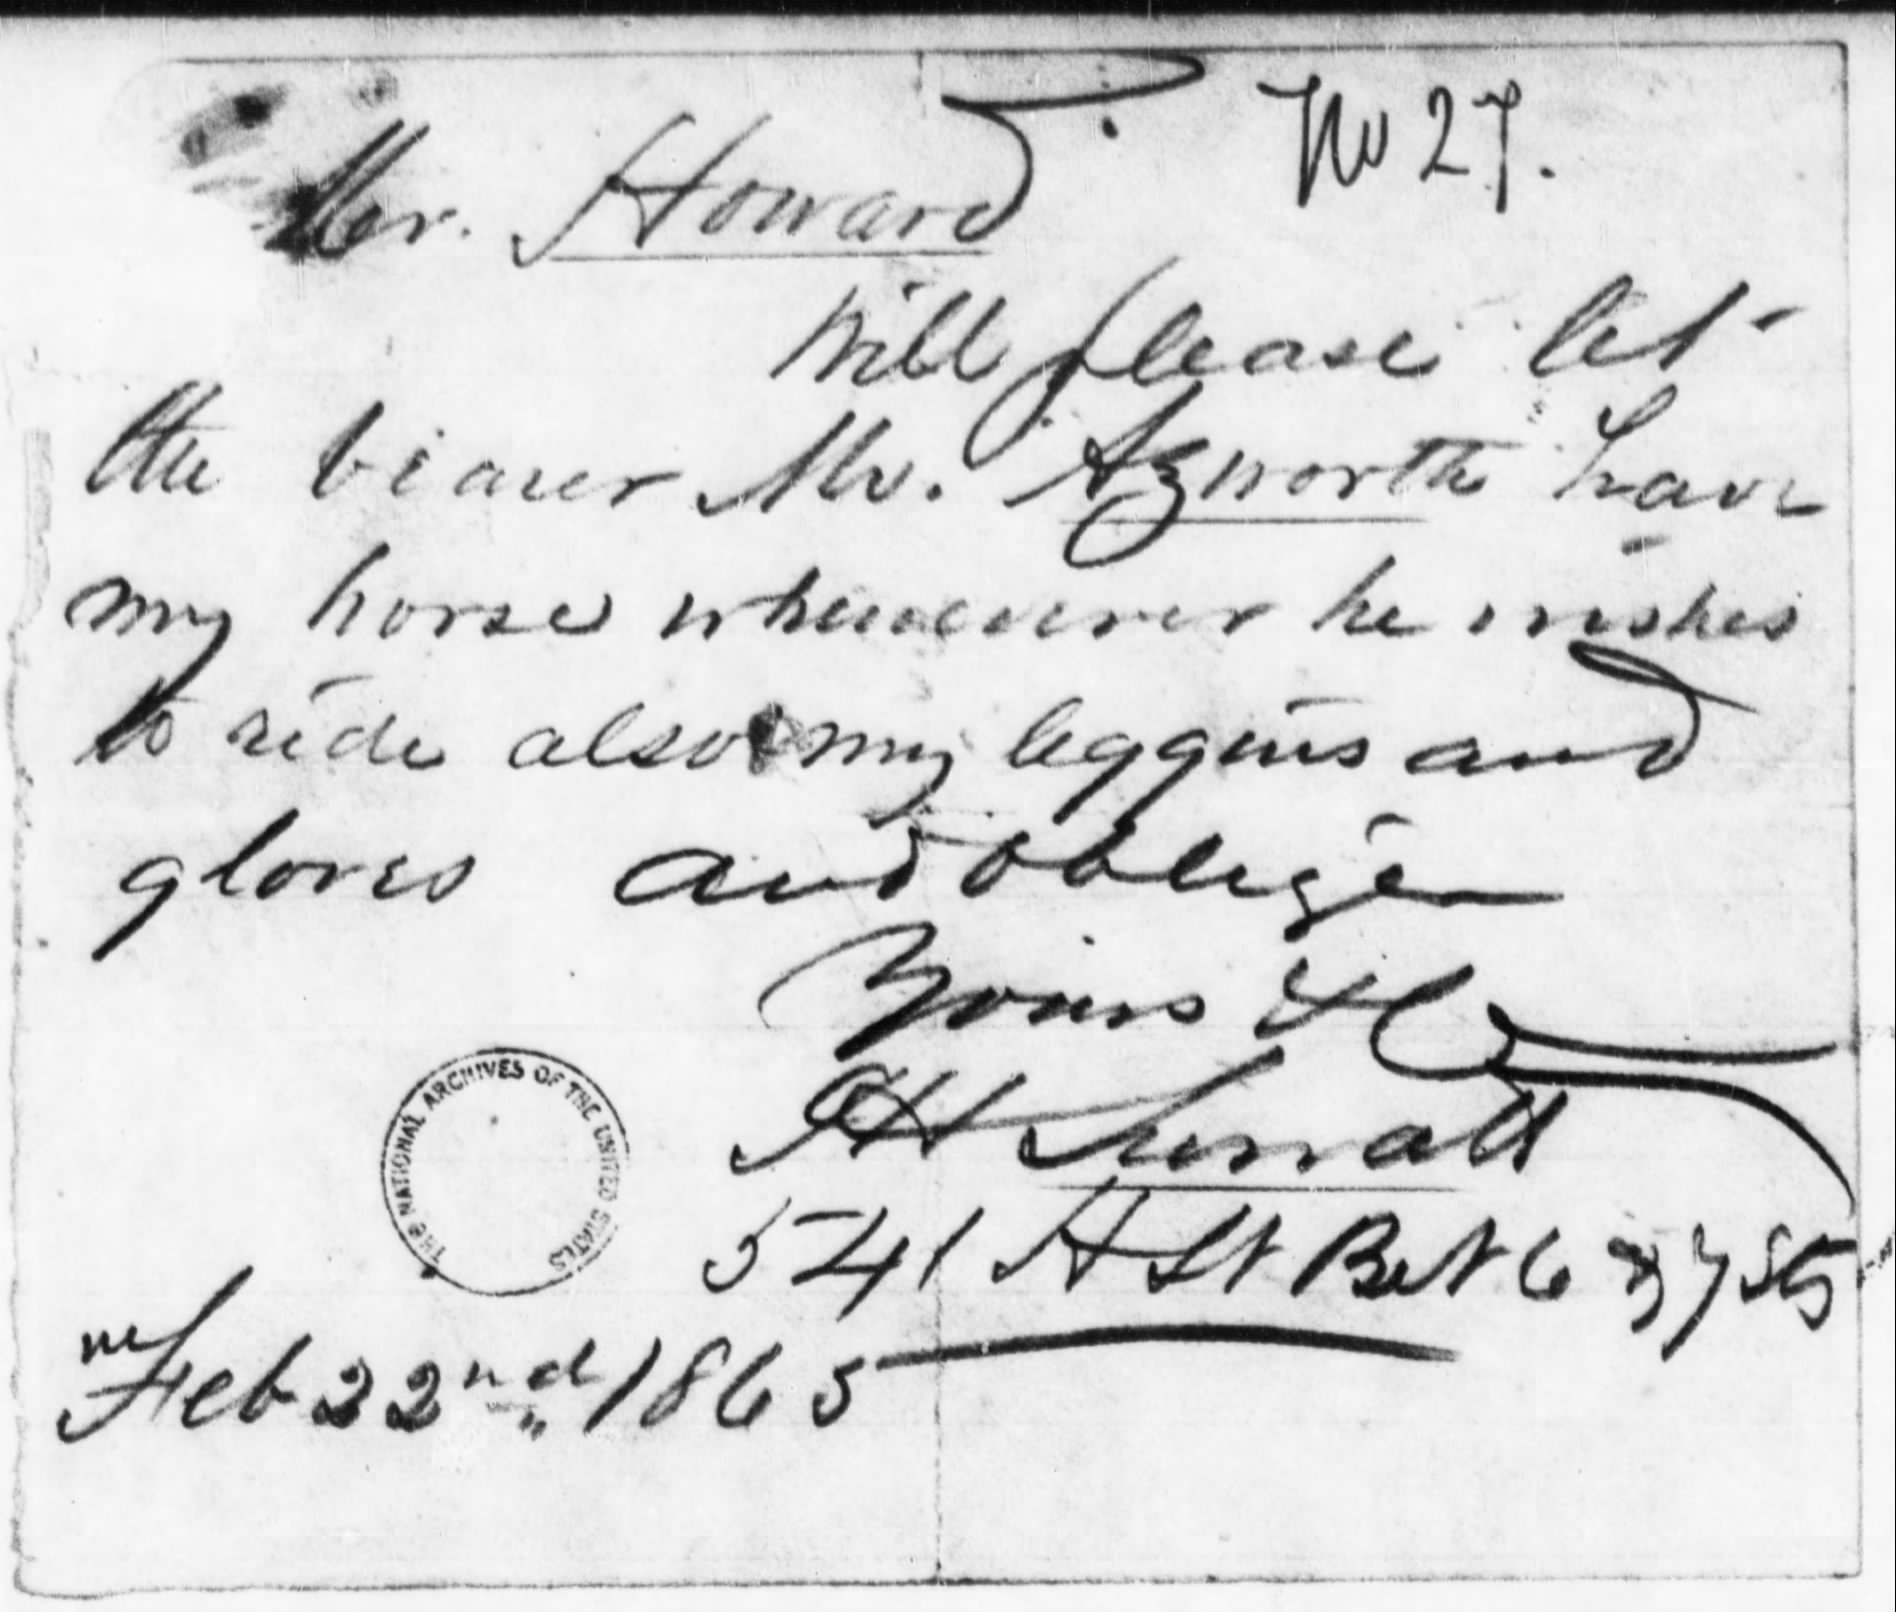 No 27.
Mr. Howard
Will please let
the bearer Mr. Azworth have
my horse whenever he wishes
to ride also my leggins and
gloves and oblige
Yours &c
JH Surratt
541 H St Bet 6 & 7 Sts
Feb 22nd 1865
THE NATIONAL ARCHIVES OF THE UNITED STATES